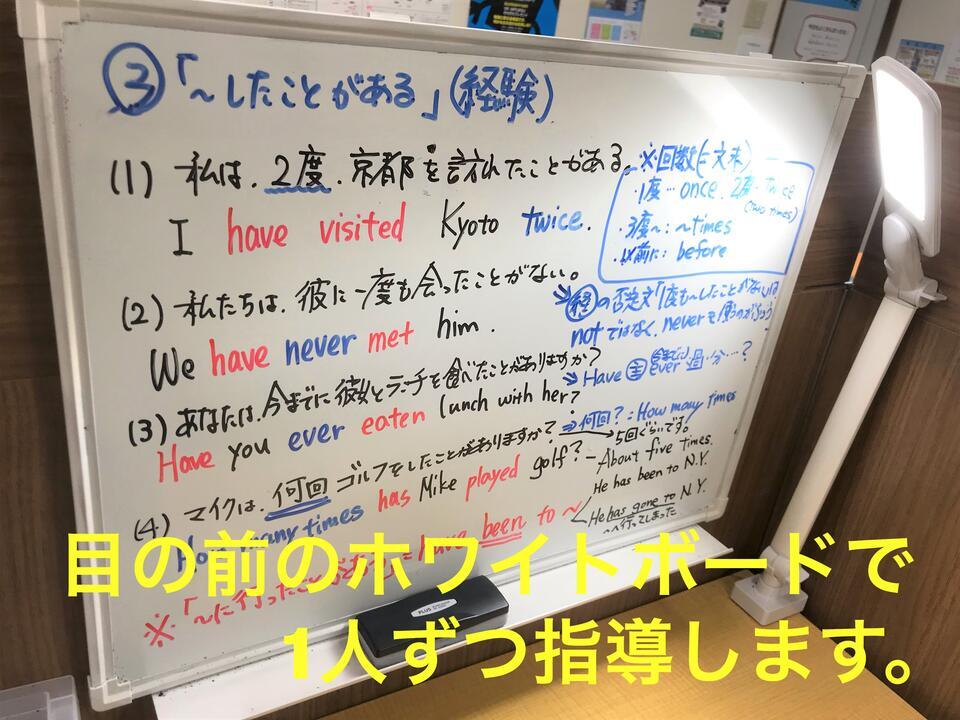 ③「〜したことがある」(経験)
(1) 私は、2度、京都を訪れたことがある。
I have visited Kyoto twice.
※回数(=文末)
・1度…once. 2度…twice
(two times)
・3度〜: 〜times
・以前に: before
(2) 私たちは、彼に一度も会ったことがない。
We have never met him.
⇒経の否定文「1度も〜したことがない」は
notではなく、neverを使うのがふつう
(3) あなたは、今までに彼女とランチを食べたことがありますか?
Have you ever eaten lunch with her?
⇒Have 主 ever 過・分…?
(今までに)
(4) マイクは、何回ゴルフをしたことがありますか?
How many times has Mike played golf?
⇒何回?: How many times
5回ぐらいです。
— About five times.
※「〜に行ったことがある」= have been to 〜
He has been to N.Y.
He has gone to N.Y.
〜へ行ってしまった
PLUS
目の前のホワイトボードで
1人ずつ指導します。